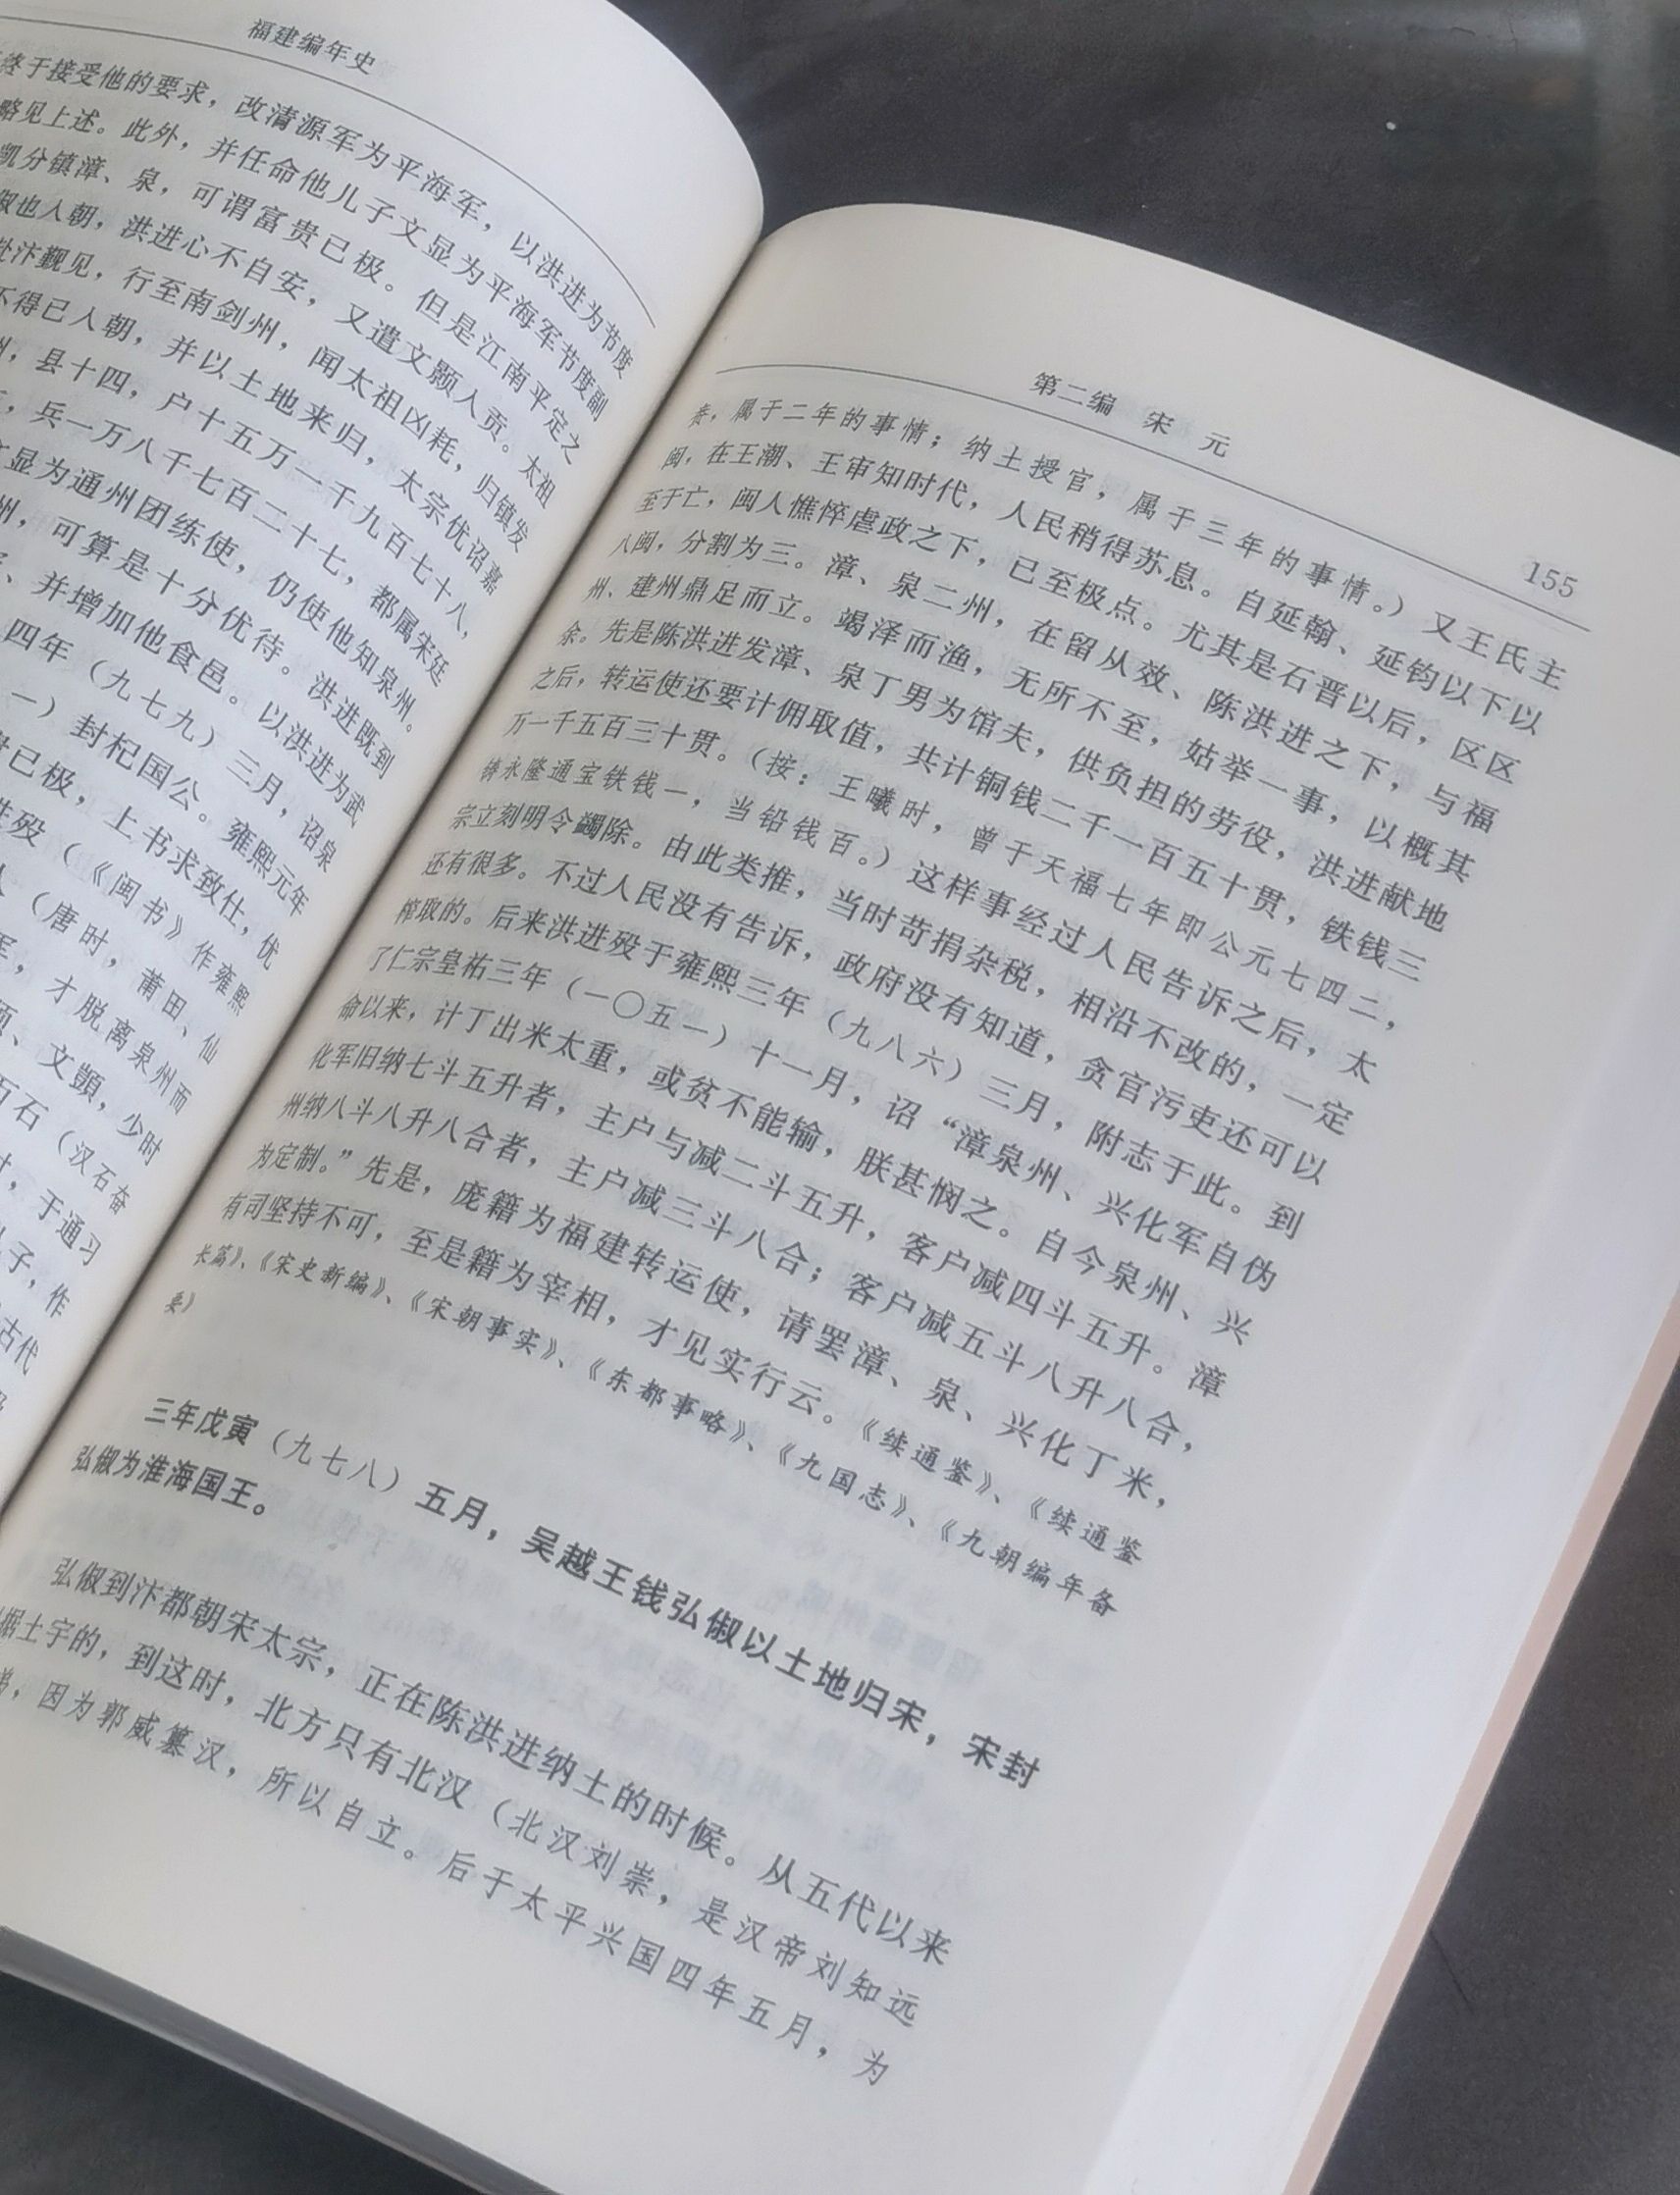 福建编年史
终于接受他的要求，改清源军为平海军，以洪进为节度
略见上述。此外，并任命他儿子文显为平海军节度副
凯分镇漳、泉，可谓富贵已极。但是江南平定之
俶也入朝，洪进心不自安，又遣文颢入贡。太祖
赴汴觐见，行至南剑州，闻太祖凶耗，归镇发
不得已入朝，并以土地来归，太宗优诏嘉
州，县十四，户十五万一千九百七十八，
，兵一万八千七百二十七，都属宋廷
文显为通州团练使，仍使他知泉州。
州，可算是十分优待。洪进既到
、并增加他食邑。以洪进为武
四年（九七九）三月，诏泉
一）封杞国公。雍熙元年
贵已极，上书求致仕，优
进殁（《闽书》作雍熙
人（唐时，莆田、仙
军，才脱离泉州而
、文顗，少时
百石（汉石奋
，于通习
子，作
古代
第二编 宋 元
155
赉，属于二年的事情；纳土授官，属于三年的事情。）又王氏主
闽，在王潮、王审知时代，人民稍得苏息。自延翰、延钧以下以
至于亡，闽人憔悴虐政之下，已至极点。尤其是石晋以后，区区
八闽，分割为三。漳、泉二州，在留从效、陈洪进之下，与福
州、建州鼎足而立。竭泽而渔，无所不至，姑举一事，以概其
余。先是陈洪进发漳、泉丁男为馆夫，供负担的劳役，洪进献地
之后，转运使还要计佣取值，共计铜钱二千一百五十贯，铁钱三
万一千五百三十贯。（按：王曦时，曾于天福七年即公元七四二，
铸永隆通宝铁钱一，当铅钱百。）这样事经过人民告诉之后，太
宗立刻明令蠲除。由此类推，当时苛捐杂税，相沿不改的，一定
还有很多。不过人民没有告诉，政府没有知道，贪官污吏还可以
榨取的。后来洪进殁于雍熙三年（九八六）三月，附志于此。到
了仁宗皇祐三年（一〇五一）十一月，诏“漳泉州、兴化军自伪
命以来，计丁出米太重，或贫不能输，朕甚悯之。自今泉州、兴
化军旧纳七斗五升者，主户与减二斗五升，客户减四斗五升。漳
州纳八斗八升八合者，主户减三斗八合；客户减五斗八升八合，
为定制。”先是，庞籍为福建转运使，请罢漳、泉、兴化丁米，
有司坚持不可，至是籍为宰相，才见实行云。《续通鉴》、《续通鉴
长篇》、《宋史新编》、《宋朝事实》、《东都事略》、《九国志》、《九朝编年备
要》
三年戊寅（九七八）五月，吴越王钱弘俶以土地归宋，宋封
弘俶为淮海国王。
弘俶到汴都朝宋太宗，正在陈洪进纳土的时候。从五代以来
据土宇的，到这时，北方只有北汉（北汉刘崇，是汉帝刘知远
弟，因为郭威篡汉，所以自立。后于太平兴国四年五月，为